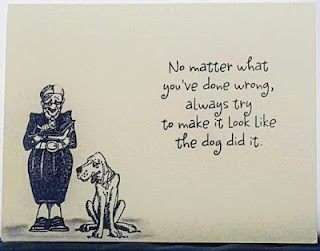 No matter what
you've done wrong,
always try
to make it look like
the dog did it.